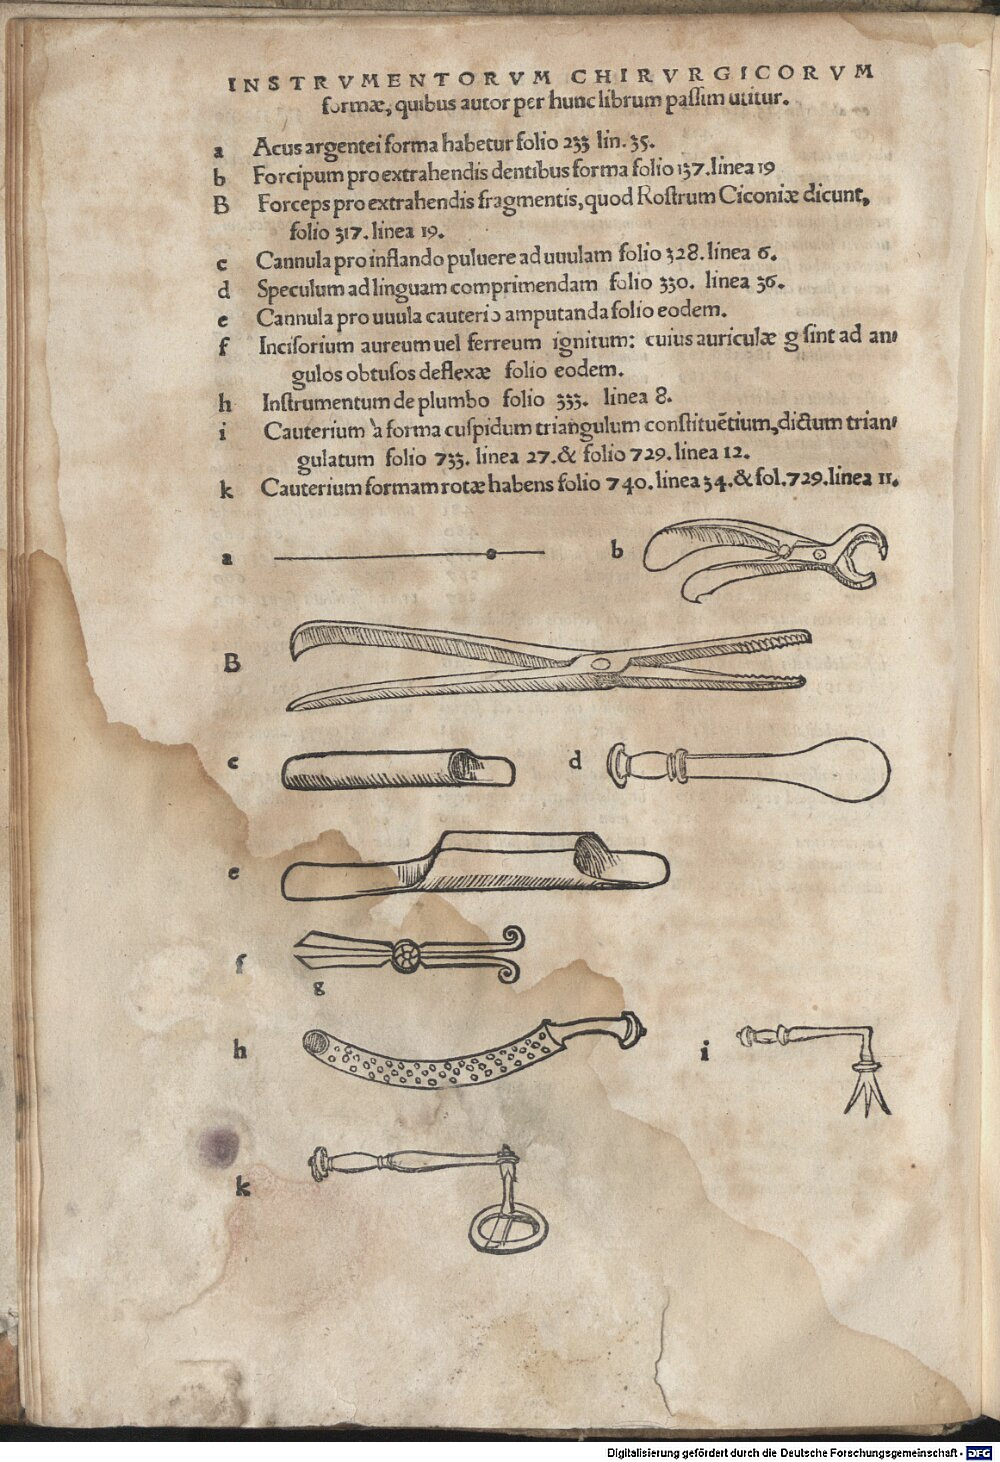 INSTRVMENTORVM CHIRVRGICORVM
formæ, quibus autor per hunc librum passim utitur.
a Acus argentei forma habetur folio 233 lin. 35.
b Forcipum pro extrahendis dentibus forma folio 137. linea 19
B Forceps pro extrahendis fragmentis, quod Rostrum Ciconiæ dicunt,
folio 317. linea 19.
c Cannula pro inflando puluere ad uuulam folio 328. linea 6.
d Speculum ad linguam comprimendam folio 330. linea 36.
e Cannula pro uuula cauterio amputanda folio eodem.
f Incisorium aureum uel ferreum ignitum: cuius auriculæ g sint ad an-
gulos obtusos deflexæ folio eodem.
h Instrumentum de plumbo folio 333. linea 8.
i Cauterium à forma cuspidum triangulum constituētium, dictum trian-
gulatum folio 733. linea 27. & folio 729. linea 12.
k Cauterium formam rotæ habens folio 740. linea 34. & fol. 729. linea 11.
a b
B
c d
e
f
g
h i
k
Digitalisierung gefördert durch die Deutsche Forschungsgemeinschaft - DFG